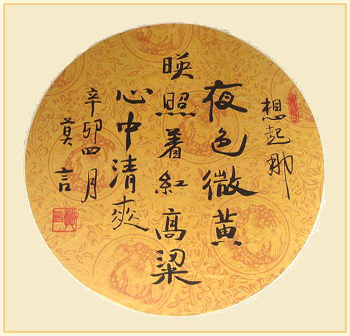 想起那
夜色微黄
暎照着紅高粱
心中清爽
辛卯四月
莫言